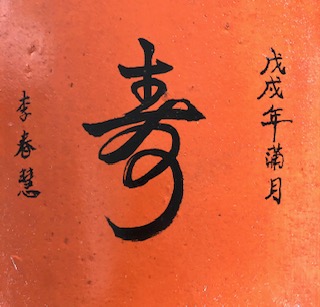 戊戌年蒲月
寿
李春慧